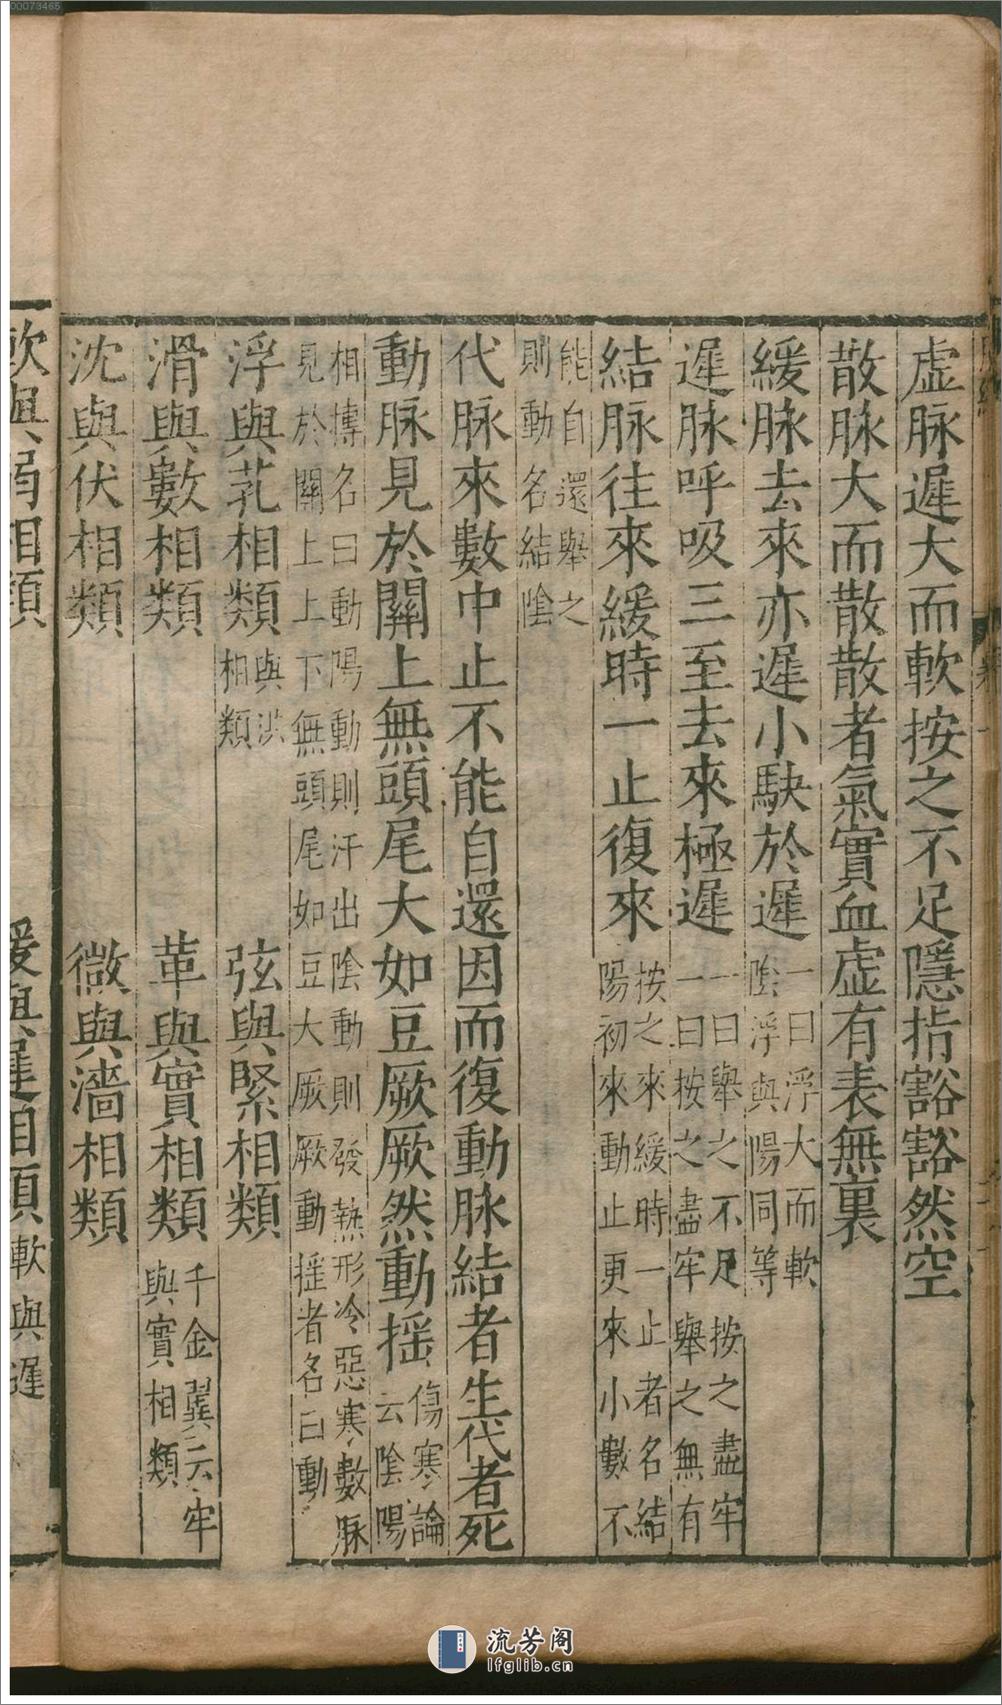 虛脉遲大而軟按之不足隱指豁豁然空
散脉大而散散者氣實血虛有表無裏
緩脉去來亦遲小駃於遲一曰浮大而軟
陰浮與陽同等
遲脉呼吸三至去來極遲一曰舉之不足按之盡牢
一曰按之盡牢舉之無有
結脉往來緩時一止復來按之來緩時一止者名結
陽初來動止更來小數不
能自還舉之
則動名結陰
代脉來數中止不能自還因而復動脉結者生代者死
動脉見於關上無頭尾大如豆厥厥然動搖傷寒論
云陰陽
相摶名曰動陽動則汗出陰動則發熱形冷惡寒數脉
見於關上上下無頭尾如豆大厥厥動搖者名曰動
浮與芤相類與洪
相類
弦與緊相類
滑與數相類
革與實相類千金翼云牢
與實相類
沈與伏相類
微與濇相類
軟與弱相類
緩與遲相類軟與遲
流芳阁
lfglib.cn
00073465